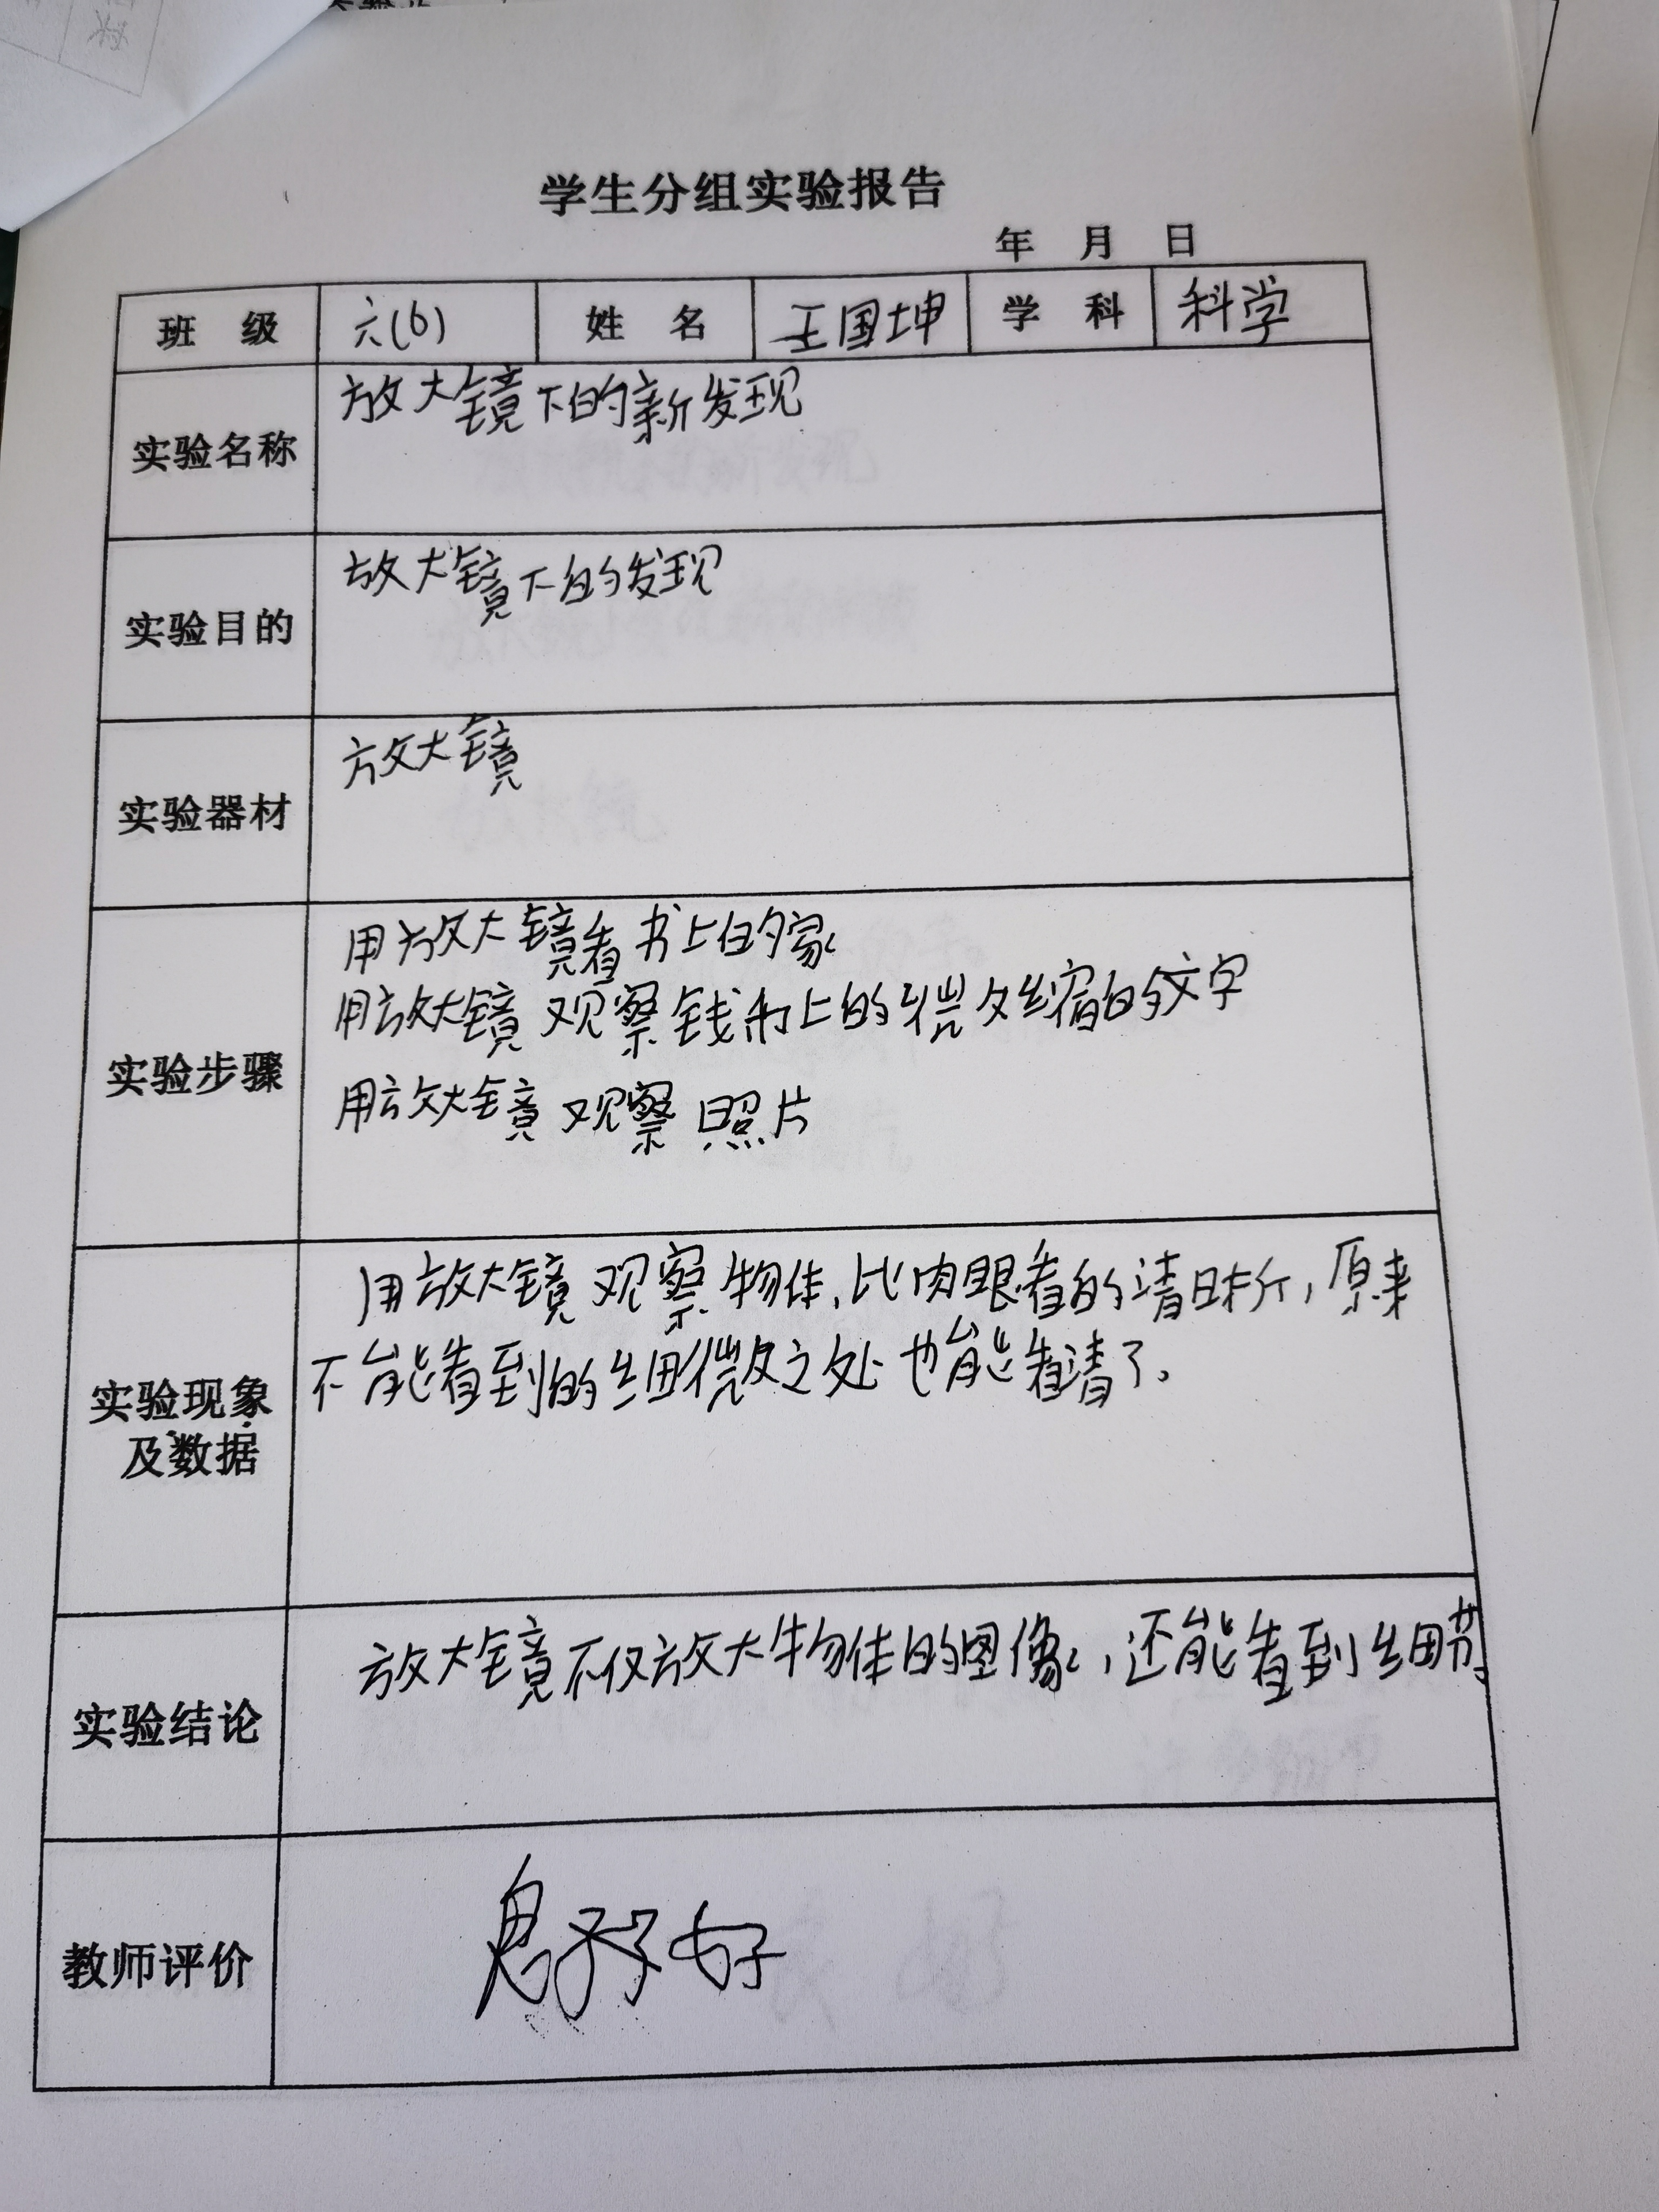 学生分组实验报告
年 月 日
班 级 六(6) 姓 名 王国坤 学 科 科学
实验名称 放大镜下的新发现
实验目的 放大镜下的发现
实验器材 放大镜
实验步骤
用放大镜看书上的
用放大镜观察钱币上的微缩的文字
用放大镜观察照片
实验现象
及数据
用放大镜观察物体,比肉眼看的清晰,原来
不能看到的细微之处也能看清了。
实验结论
放大镜不仅放大物体的图像,还能看到细节
教师评价 好